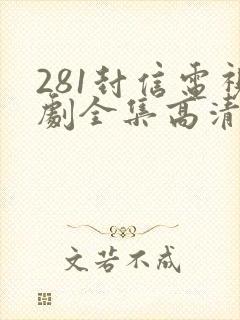 281封信電視
劇全集高清
文若不成